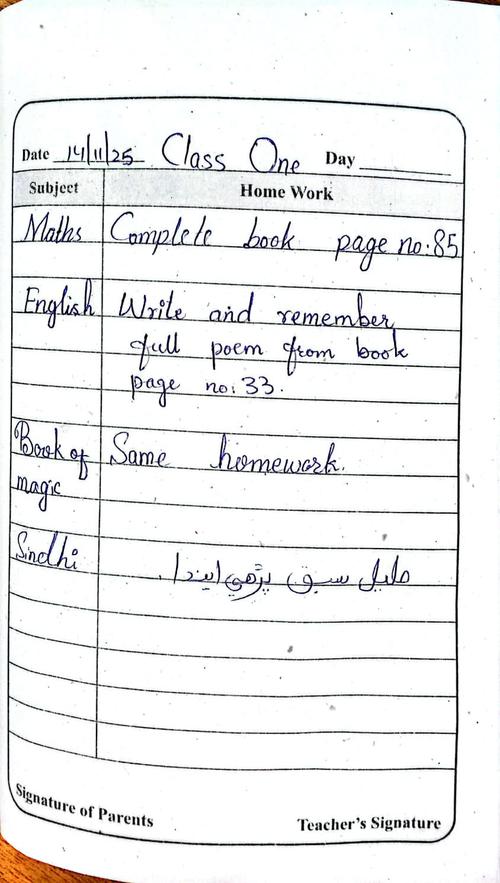 Date 14/11/25 Class One Day
Subject Home Work
Maths Complete book page no:85
English Write and remember
full poem from book
page no: 33.
Book of Same homework.
magic
Sindhi مليل سبق پڙهي ايندا.
Signature of Parents Teacher's Signature